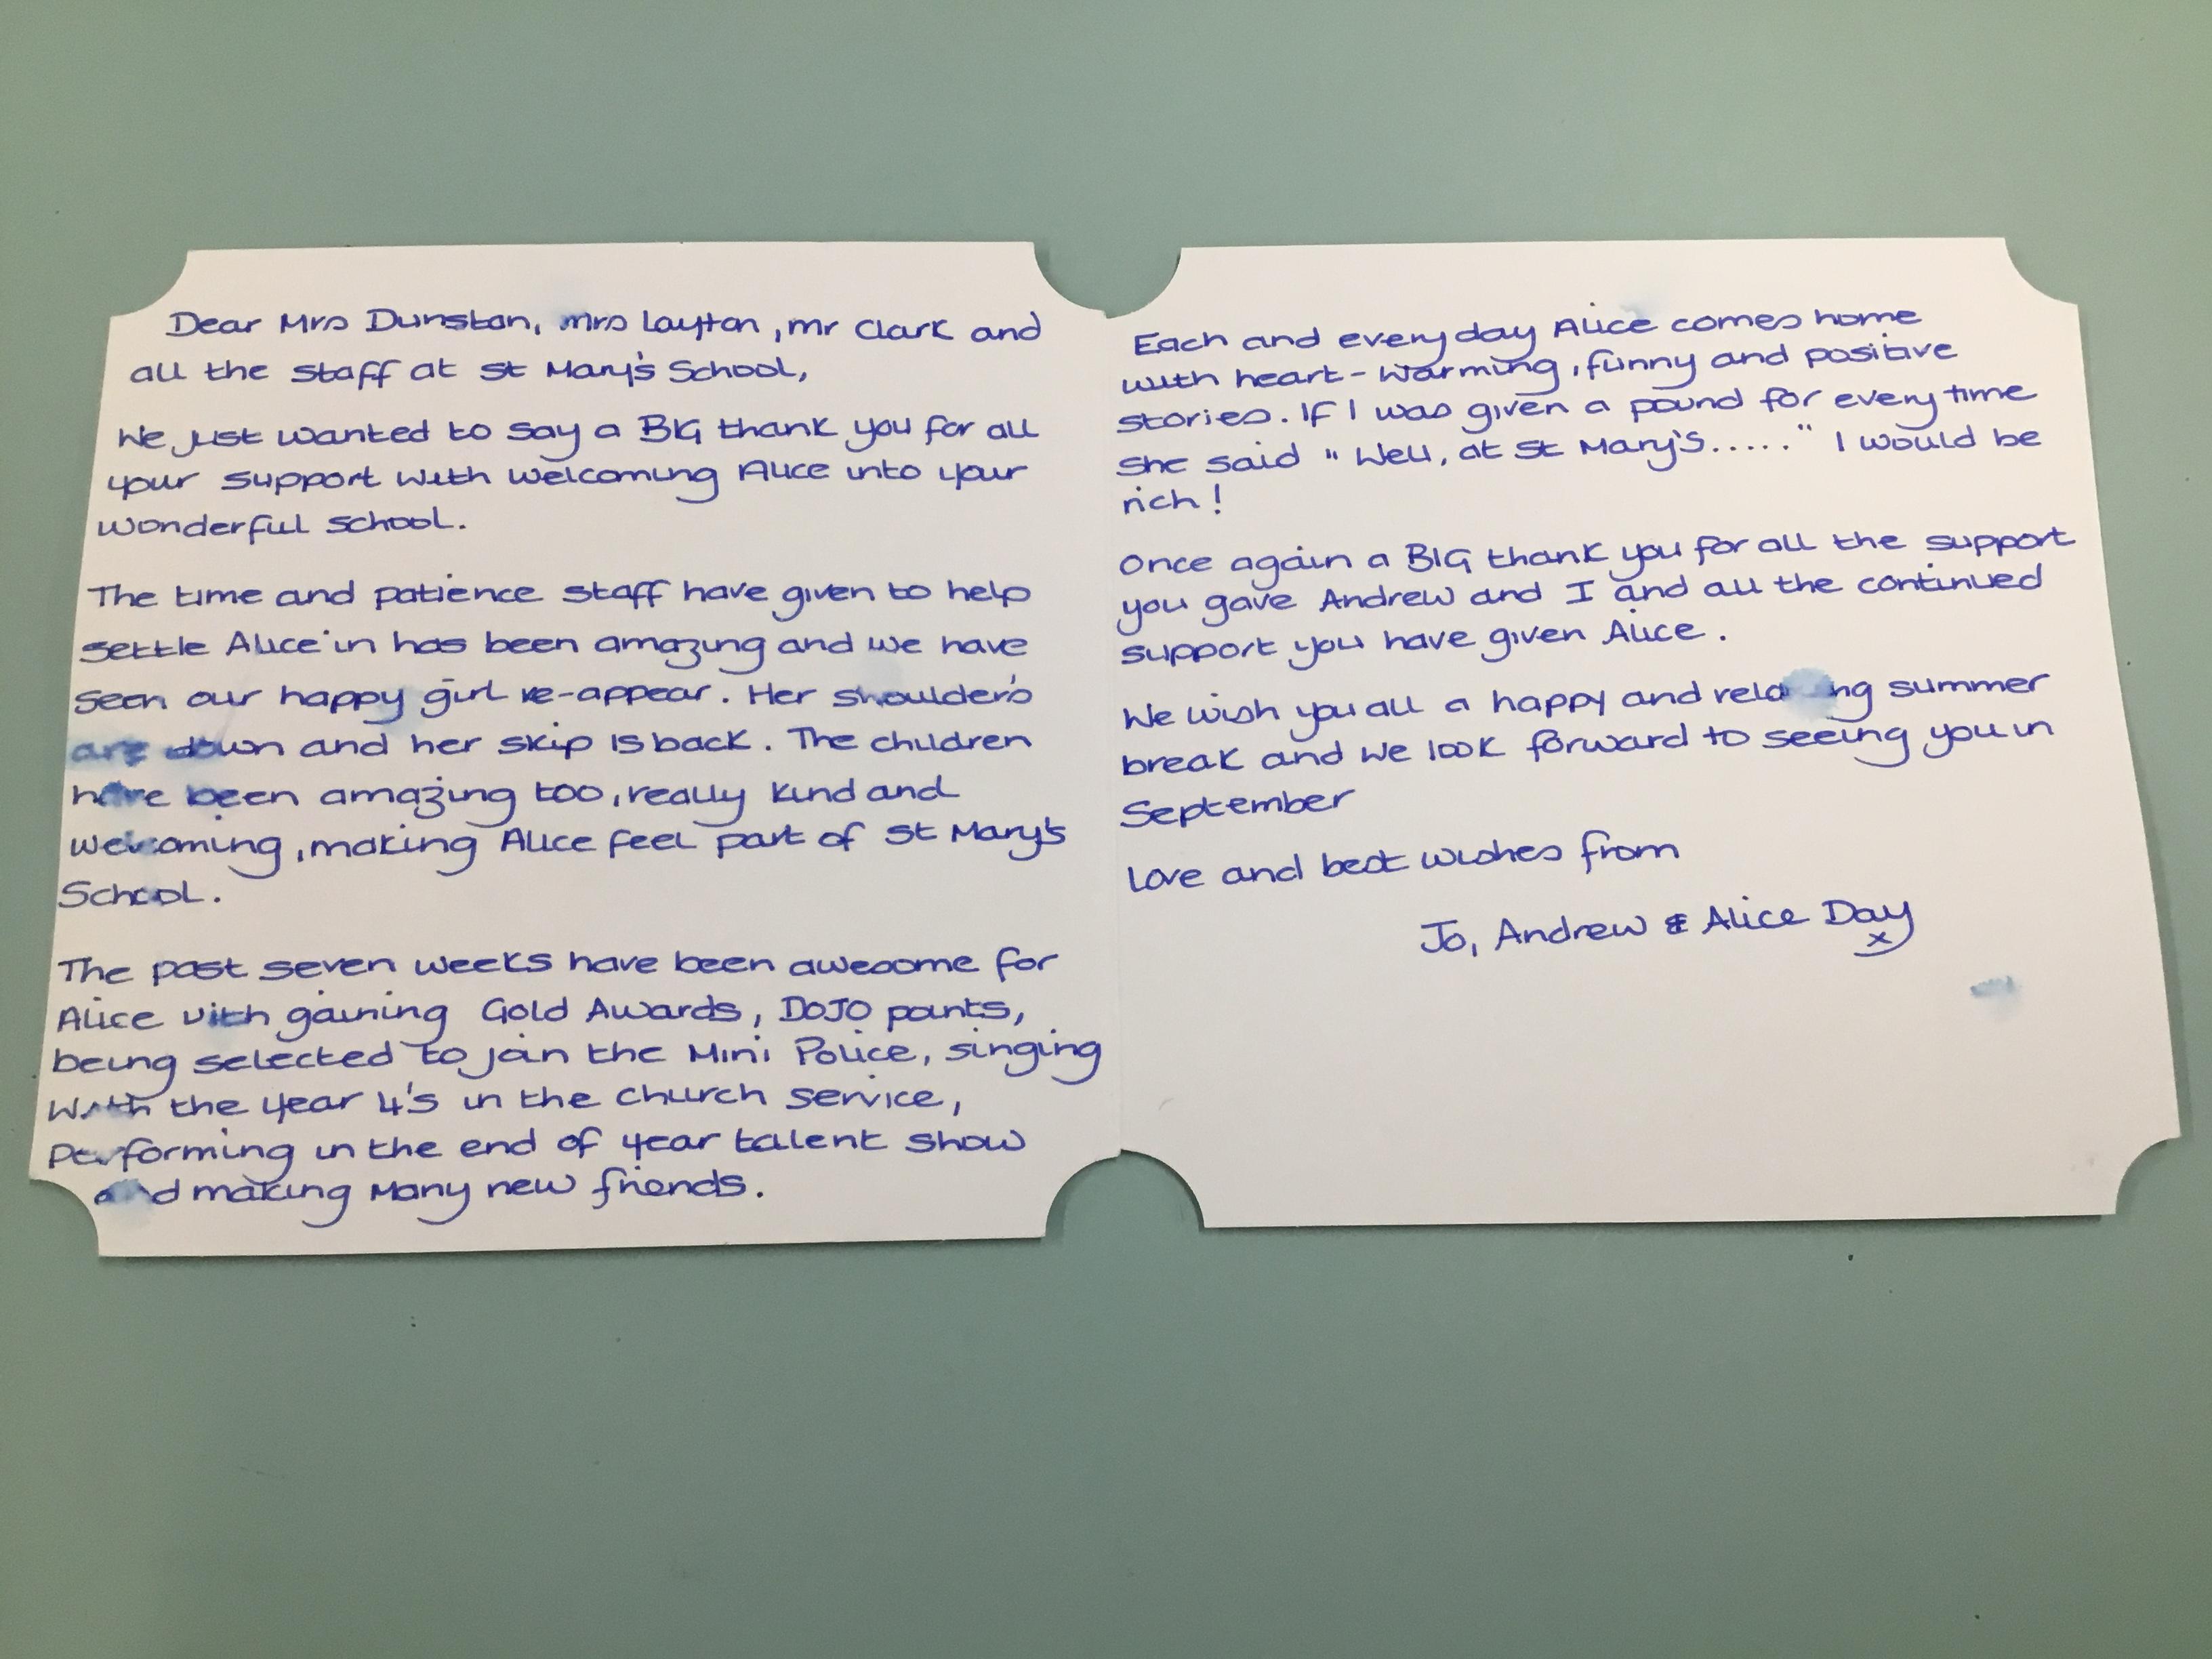 Dear Mrs Dunstan, Mrs Layton, Mr Clark and
all the staff at St Mary's School,
We just wanted to say a BIG thank you for all
your support with welcoming Alice into your
wonderful school.
The time and patience staff have given to help
settle Alice in has been amazing and we have
seen our happy girl re-appear. Her shoulders
are down and her skip is back. The children
have been amazing too, really kind and
welcoming, making Alice feel part of St Mary's
School.
The past seven weeks have been awesome for
Alice with gaining Gold Awards, DOJO points,
being selected to join the Mini Police, singing
with the year 4's in the church service,
performing in the end of year talent show
and making many new friends.
Each and every day Alice comes home
with heart-warming, funny and positive
stories. If I was given a pound for every time
she said "Well, at St Mary's....." I would be
rich!
Once again a BIG thank you for all the support
you gave Andrew and I and all the continued
support you have given Alice.
We wish you all a happy and relaxing summer
break and we look forward to seeing you in
September
Love and best wishes from
Jo, Andrew & Alice Day
x